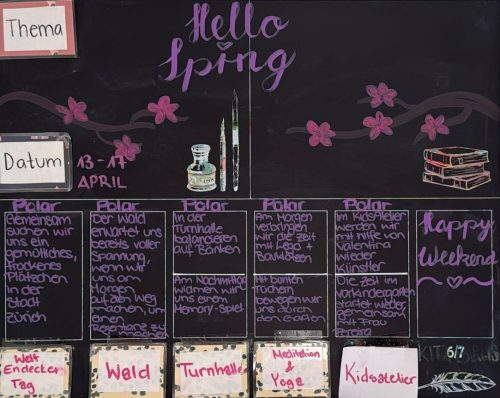 Thema
Hello
Spring
Datum
13-17
APRIL
Polar
Gemeinsam
suchen wir
uns ein
gemütliches,
trockenes
Plätzchen
in der
Stadt
Zürich
Polar
Der Wald
erwartet uns
bereits voller
Spannung,
wenn wir
uns am
Morgen
auf den Weg
machen, um
einen
Regentanz zu
Polar
In der
Turnhalle
balancieren
auf Bänken
Am Nachmittag
widmen wir
uns einem
Memory-Spiel
Polar
Am Morgen
verbringen
wir die Zeit
mit Lego +
Bauklötzen
Mit bunten
Tüchern
bewegen wir
uns durch
den Garten
Polar
Im Kidsatelier
werden wir
mit hilfe von
Valentina
wieder
Künstler
Die Zeit im
Vorkindergarten
startet wieder,
gemeinsam
mit Frau
Happy
Weekend
Welt
Endecker
Tag
Wald
Turnhalle
Meditation
&
Yoga
Kidsatelier
KIT 6/7